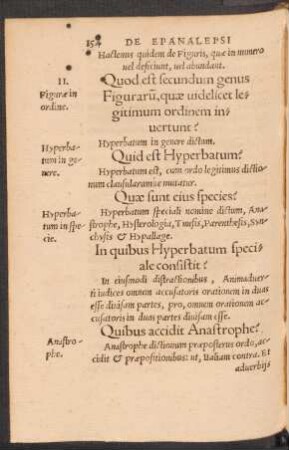 154 DE EPANALEPSI
Hactenus quidem de Figuris, quæ in numero
uel deficiunt, uel abundant.
II.
Figuræ in
ordine.
Quod est secundum genus
Figurarū, quæ uidelicet le-
gitimum ordinem in-
uertunt?
Hyperba-
tum in ge-
nere.
Hyperbatum in genere dictum.
Quid est Hyperbatum?
Hyperbatum est, cum ordo legitimus dictio
num clausularum´ue mutatur.
Quæ sunt eius species?
Hyperba-
tum in spe-
cie.
Hyperbatum speciali nomine dictum, Ana-
strophe, Hysterologia, Tmesis, Parenthesis, Syn-
chysis & Hypallage.
In quibus Hyperbatum speci-
ale consistit?
In eiusmodi distractionibus, Animaduer-
ti iudices omnem accusatoris orationem in duas
esse diuisam partes, pro, omnem orationem ac-
cusatoris in duas partes diuisam esse.
Quibus accidit Anastrophe?
Anastro-
phe.
Anastrophe dictionum præposterus ordo, ac-
cidit & præpositionibus: ut, Italiam contra. Et
aduerbijs